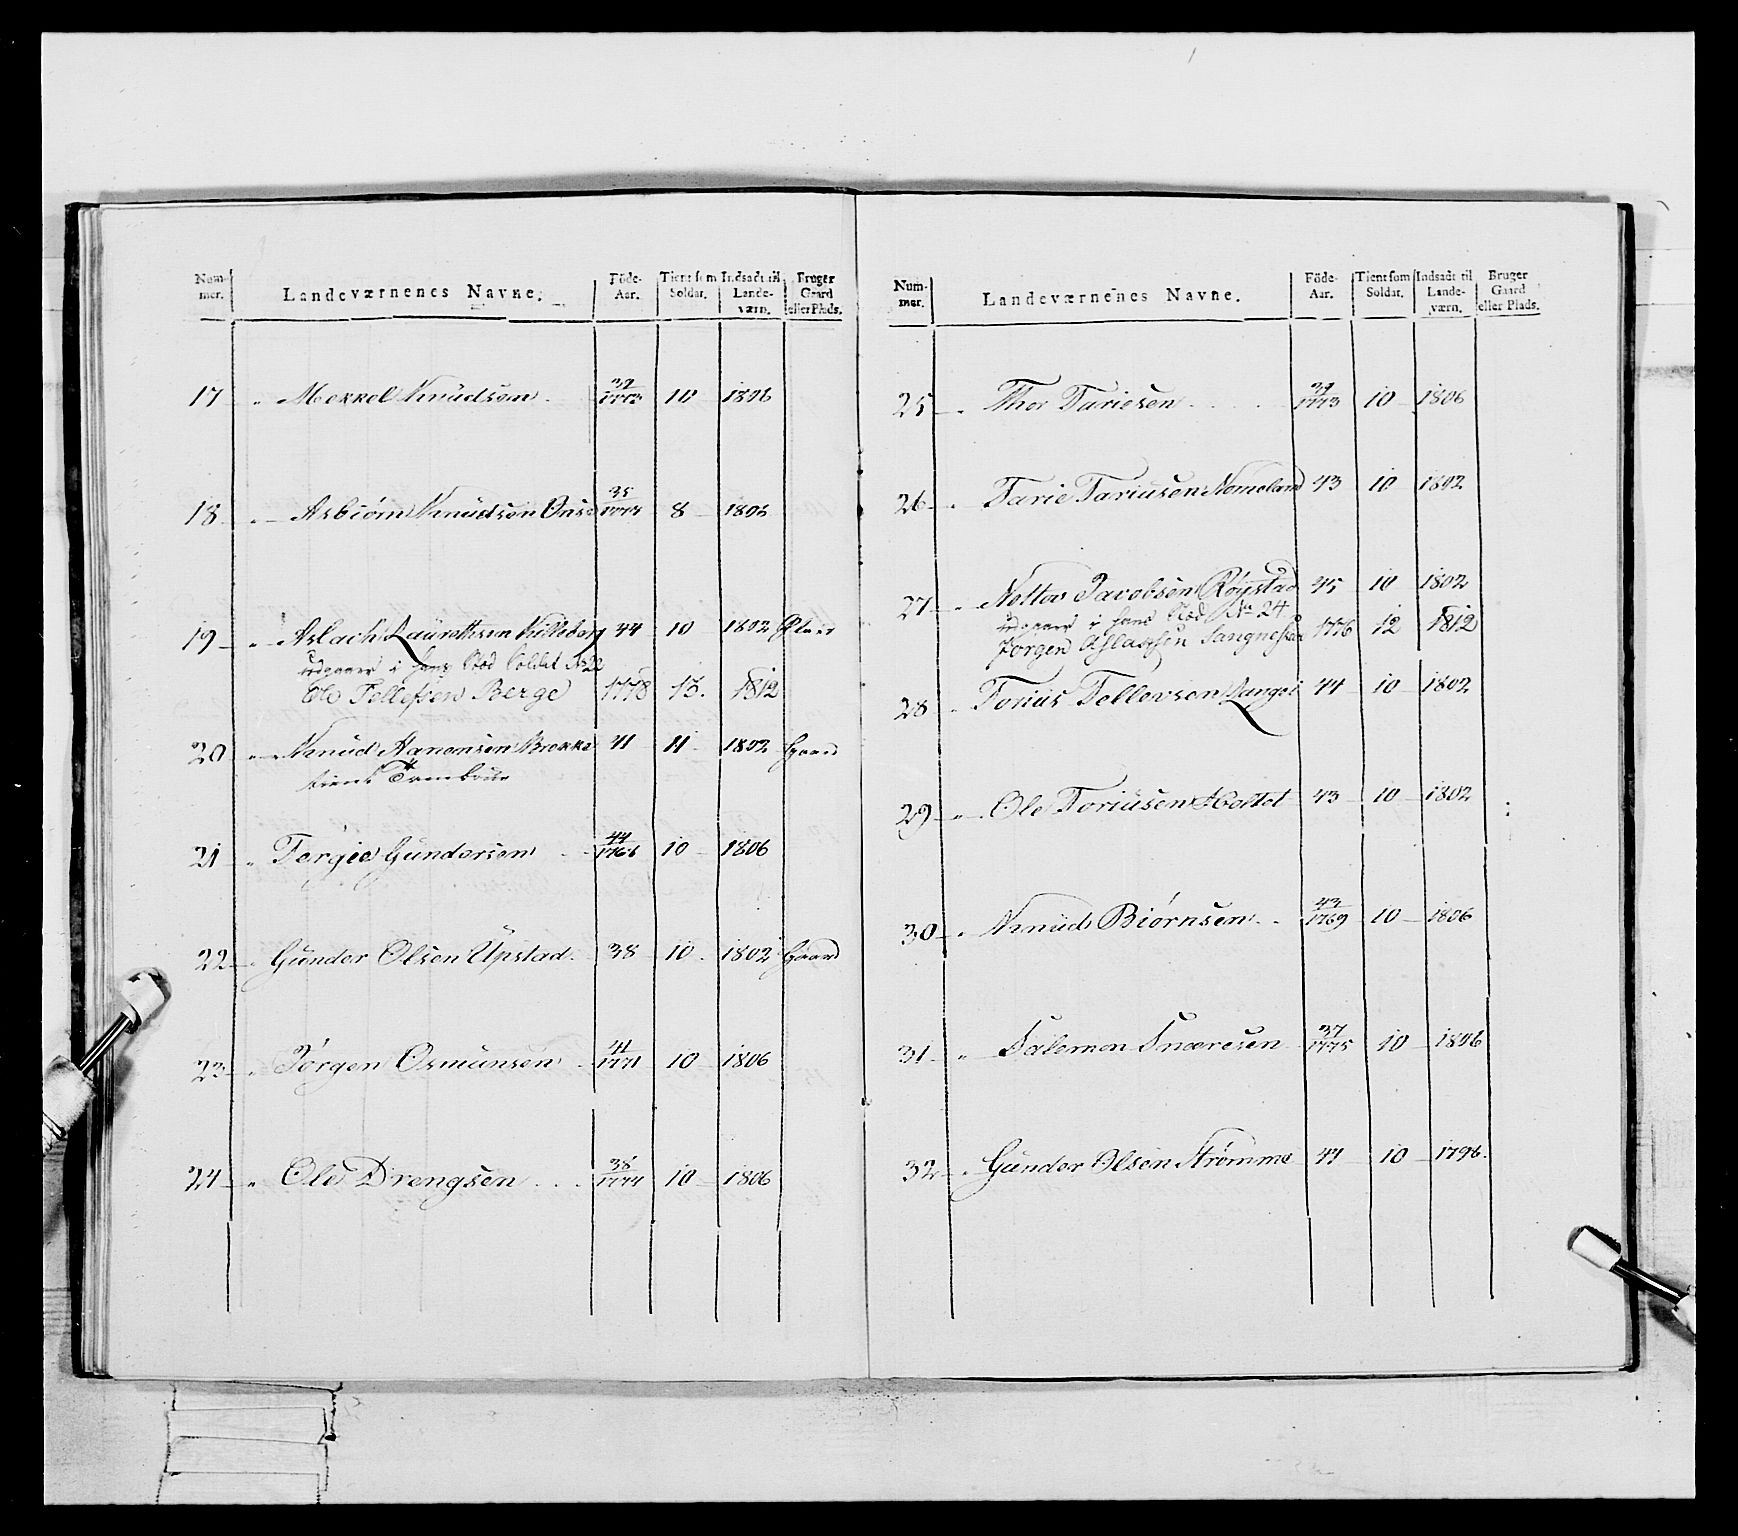 Num-mer. Landeværnenes Navne. Föde-Aar. Tient som Soldat. Indsadt til Lande-værn. Bruger Gaard eller Plads.
17 " Mekkel Knudsen 39/1773 10 1806
18 " Asbiørn Knudsen 35 8 1806
19 " Aslach Laurethsen 44 10 1802 Plads
udgaaer i hans Stød Soldat No 22
Ole Tellefsen Berge 1778 13. 1812
20 " Knud Hanonsen Brokke 41 11 1802 Gaard
tient Tambour
21 " Tergie Gundersen 44/1768 10 1806
22 " Gunder Olsen Upstad 38 10 1802 Gaard
23 " Jørgen Osmunsen 41/1771 10 1806
24 " Ole Drengsen 38/1774 10 1806
Num-mer. Landeværnenes Navne. Föde-Aar. Tient som Soldat. Indsadt til Lande-værn. Bruger Gaard eller Plads.
25 " Thor Tariesen 39/1773 10 1806
26 " Tarie Tariusen Nomeland 43 10 1802
27 " Nottov Jacobsen Røystad 45 10 1802
udgaaer i hans Stød No 24
Jørgen Aslachsen 1776 12 1812
28 " Torius Tellevsen Langei 44 10 1802
29 " Ole Toriusen Holtet 43 10 1802
30 " Knud Biørnsen 43/1769 10 1806
31 " Salemon Snaresen 37/1775 10 1806
32 " Gunder Olsen Strømme 47 10 1796.